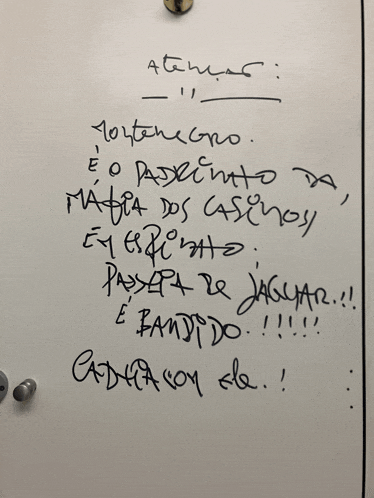 Atenção:
— " —
Montenegro.
É O PADRINHO DA,
MÁFIA DOS CASINOS,
EM ESPINHO.
PASSEIA DE JAGUAR.!!
É BANDIDO.!!!!!
CADEIA COM ELE.!